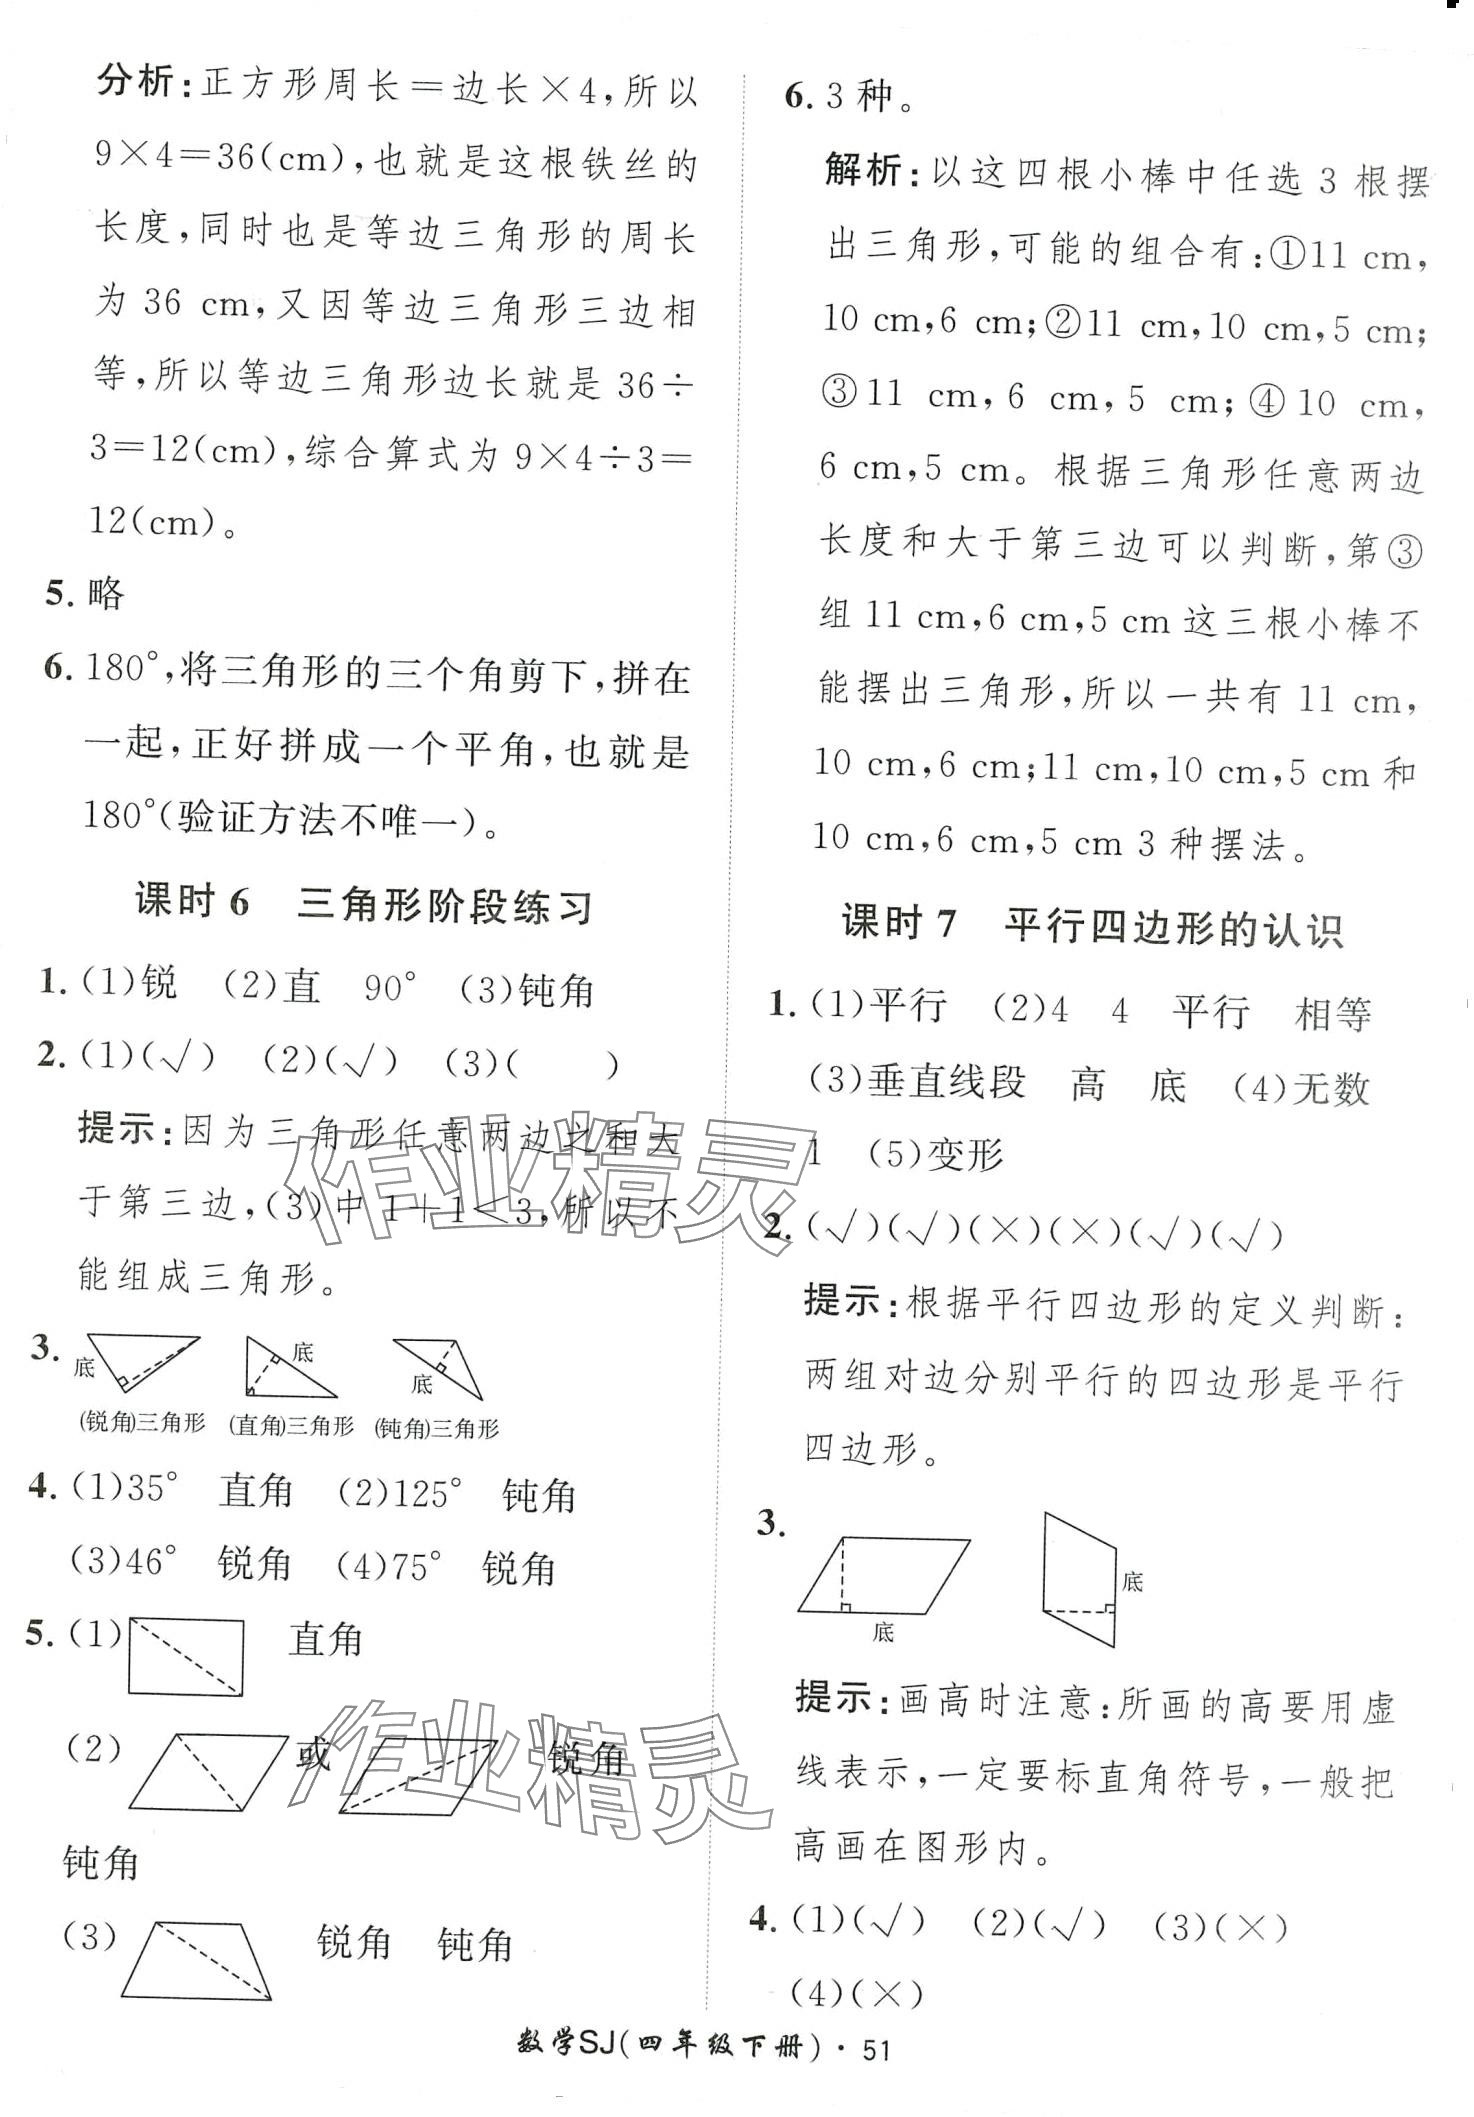 分析:正方形周长=边长×4,所以
9×4=36(cm),也就是这根铁丝的
长度,同时也是等边三角形的周长
为 36 cm,又因等边三角形三边相
等,所以等边三角形边长就是 36÷
3=12(cm),综合算式为 9×4÷3=
12(cm)。
5. 略
6. 180°,将三角形的三个角剪下,拼在
一起,正好拼成一个平角,也就是
180°(验证方法不唯一)。
课时 6 三角形阶段练习
1. (1)锐 (2)直 90° (3)钝角
2. (1)(√) (2)(√) (3)( )
提示:因为三角形任意两边之和大
于第三边,(3)中 1+1<3,所以不
能组成三角形。
3. 底 底 底
(锐角)三角形 (直角)三角形 (钝角)三角形
4. (1)35° 直角 (2)125° 钝角
(3)46° 锐角 (4)75° 锐角
5. (1) 直角
(2) 或 锐角
钝角
(3) 锐角 钝角
6. 3 种。
解析:以这四根小棒中任选 3 根摆
出三角形,可能的组合有:①11 cm,
10 cm,6 cm;②11 cm,10 cm,5 cm;
③11 cm,6 cm,5 cm;④10 cm,
6 cm,5 cm。根据三角形任意两边
长度和大于第三边可以判断,第③
组 11 cm,6 cm,5 cm 这三根小棒不
能摆出三角形,所以一共有 11 cm,
10 cm,6 cm;11 cm,10 cm,5 cm 和
10 cm,6 cm,5 cm 3 种摆法。
课时 7 平行四边形的认识
1. (1)平行 (2)4 4 平行 相等
(3)垂直线段 高 底 (4)无数
1 (5)变形
2. (√)(√)(×)(×)(√)(√)
提示:根据平行四边形的定义判断:
两组对边分别平行的四边形是平行
四边形。
3. 底 底
提示:画高时注意:所画的高要用虚
线表示,一定要标直角符号,一般把
高画在图形内。
4. (1)(√) (2)(√) (3)(×)
(4)(×)
数学SJ(四年级下册)·51
作业精灵
作业精灵